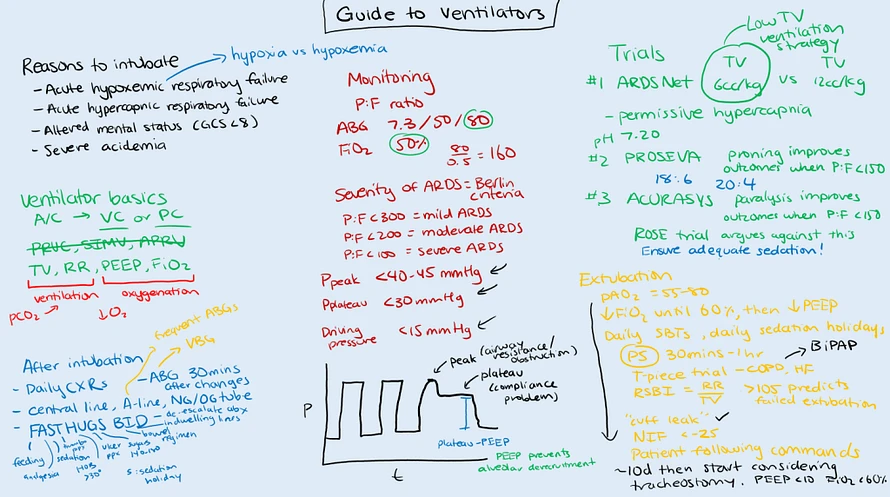 Guide to Ventilators
Reasons to intubate
hypoxia vs hypoxemia
- Acute hypoxemic respiratory failure
- Acute hypercapnic respiratory failure
- Altered mental status (GCS<8)
- Severe acidemia
Ventilator basics
A/C → VC or PC
PRVC, SIMV, APRV
TV, RR, PEEP, FiO2
ventilation oxygenation
PCO2 ↓O2
frequent ABGs
VBG
After intubation
- Daily CXRs
- ABG 30mins
after changes
- central line, A-line, NG/OG tube
- FAST HUGS BID
de-escalate abx
indwelling lines
bowel
regimen
feeding
analgesia
sedation
HOB
>30°
ulcer
ppx
sugars
S: sedation
holiday
Monitoring
P:F ratio
ABG 7.3/50/80
FiO2 50%
80
0.5 = 160
Severity of ARDS = Berlin
criteria
P:F<300 = mild ARDS
P:F<200 = moderate ARDS
P:F<100 = severe ARDS
Ppeak <40-45 mmHg
Pplateau <30 mmHg
Driving
pressure <15 mmHg
peak (airway
resistance/
obstruction)
plateau
(compliance
problem)
P
plateau-PEEP
t
PEEP prevents
alveolar derecruitment
Low TV
ventilation
strategy
Trials
#1 ARDSNet TV 6cc/kg vs TV 12cc/kg
- permissive hypercapnia
pH 7.20
#2 PROSEVA proning improves
outcomes when P:F<150
18:6 20:4
#3 ACURASYS paralysis improves
outcomes when P:F<150
ROSE trial argues against this
Ensure adequate sedation!
Extubation
pAO2 = 55-80
↓FiO2 until 60%, then ↓PEEP
Daily SBTs, daily sedation holidays
PS 30mins-1hr
BiPAP
T-piece trial - COPD, HF
RSBI = RR
TV
>105 predicts
failed extubation
"cuff leak" ✓
NIF <-25
Patient following commands
~10d then start considering
tracheostomy. PEEP<10 FiO2<60%